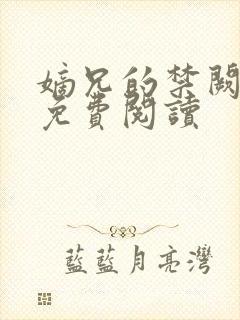 嫡兄的禁闕
免費閱讀
藍藍月亮灣